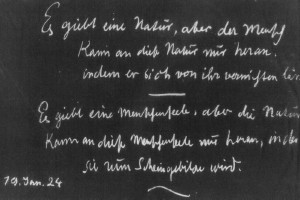 Es giebt eine Natur, aber der Mensch
kann an dieß Natur nur heran,
indem er sich von ihr vernichten
Es giebt eine Menschenseele, aber die Natur
kann an dieße Menschenseele nur heran, indem
sie zum Scheingebilde wird.
19. Jan. 24